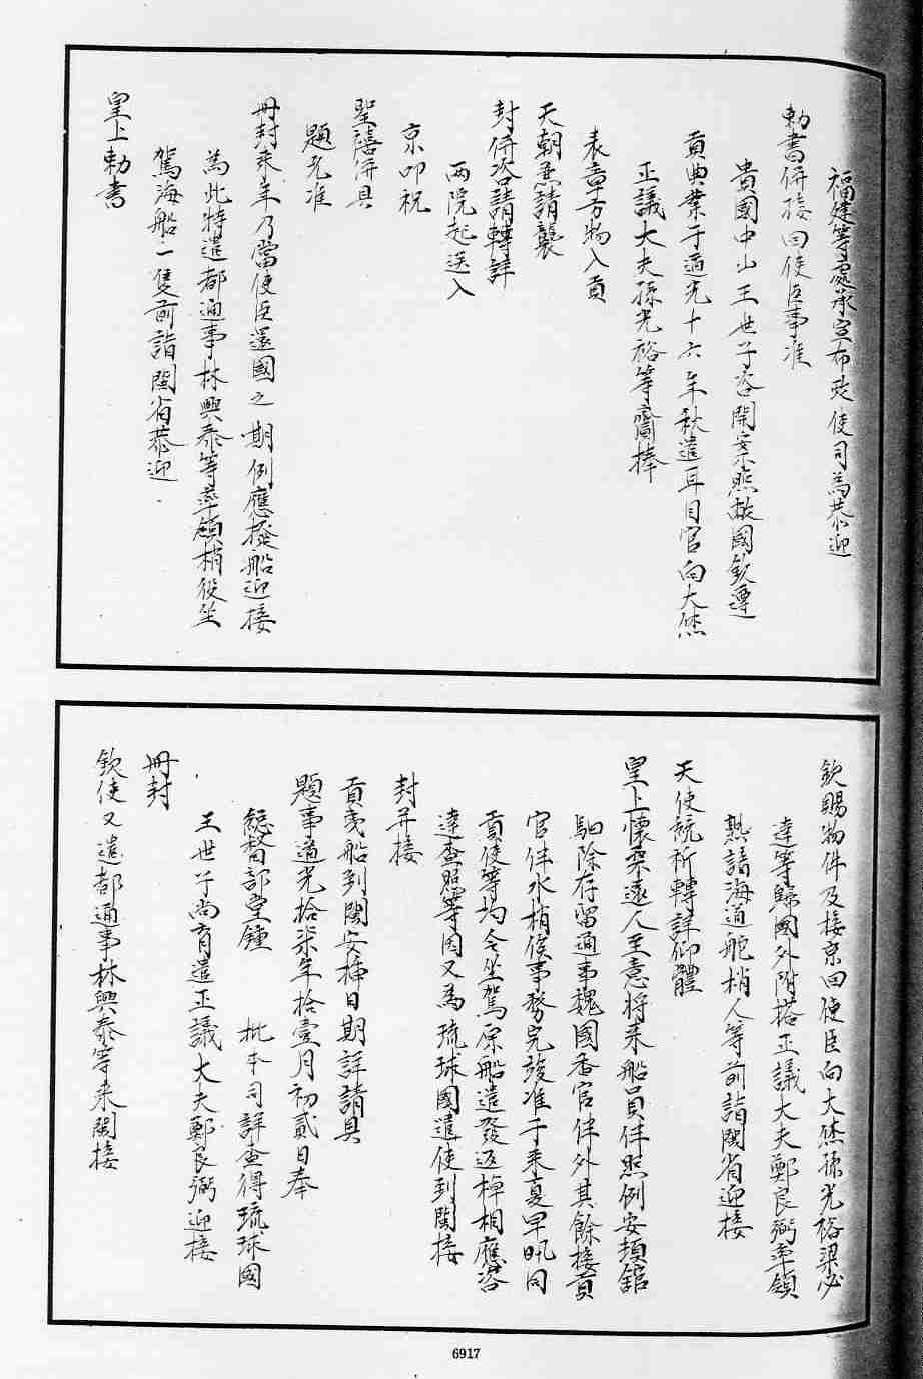 福建等處承宣布政使司為恭迎
勅書併接回使臣事准
貴國中山王世子咨開案照敝國欽遵
貢典業于道光十六年秋遣耳目官向大烋
正議大夫孫光裕等齎捧
表章方物入貢
天朝兼請襲
封併咨請轉詳
兩院起送入
京叩祝
聖禧併具
題允准
冊封來年乃當使臣還國之期例應撥船迎接
為此特遣都通事林興泰等率領梢役坐
駕海船一隻前詣閩省恭迎
皇上勅書
欽賜物件及接京回使臣向大烋孫光裕梁必
達等歸國外附搭正議大夫鄭良弼率領
熟諳海道舵梢人等前詣閩省迎接
天使統祈轉詳仰體
皇上懷柔遠人至意將來船員伴照例安頓舘
驅除存留通事魏國香官伴外其餘接貢
官伴水梢俟事務完竣准于来夏早汛同
貢使等均令坐駕原船遣發返棹相應咨
達查照等因又為琉球國遣使到閩接
封并接
貢貳船到閩安揷日期詳請具
題事道光拾柒年拾壹月初貳日奉
總督部堂鐘 批本司詳查得琉球國
王世子尚育遣正議大夫鄭良弼迎接
冊封
欽使又遣都通事林興泰等来閩接
6917